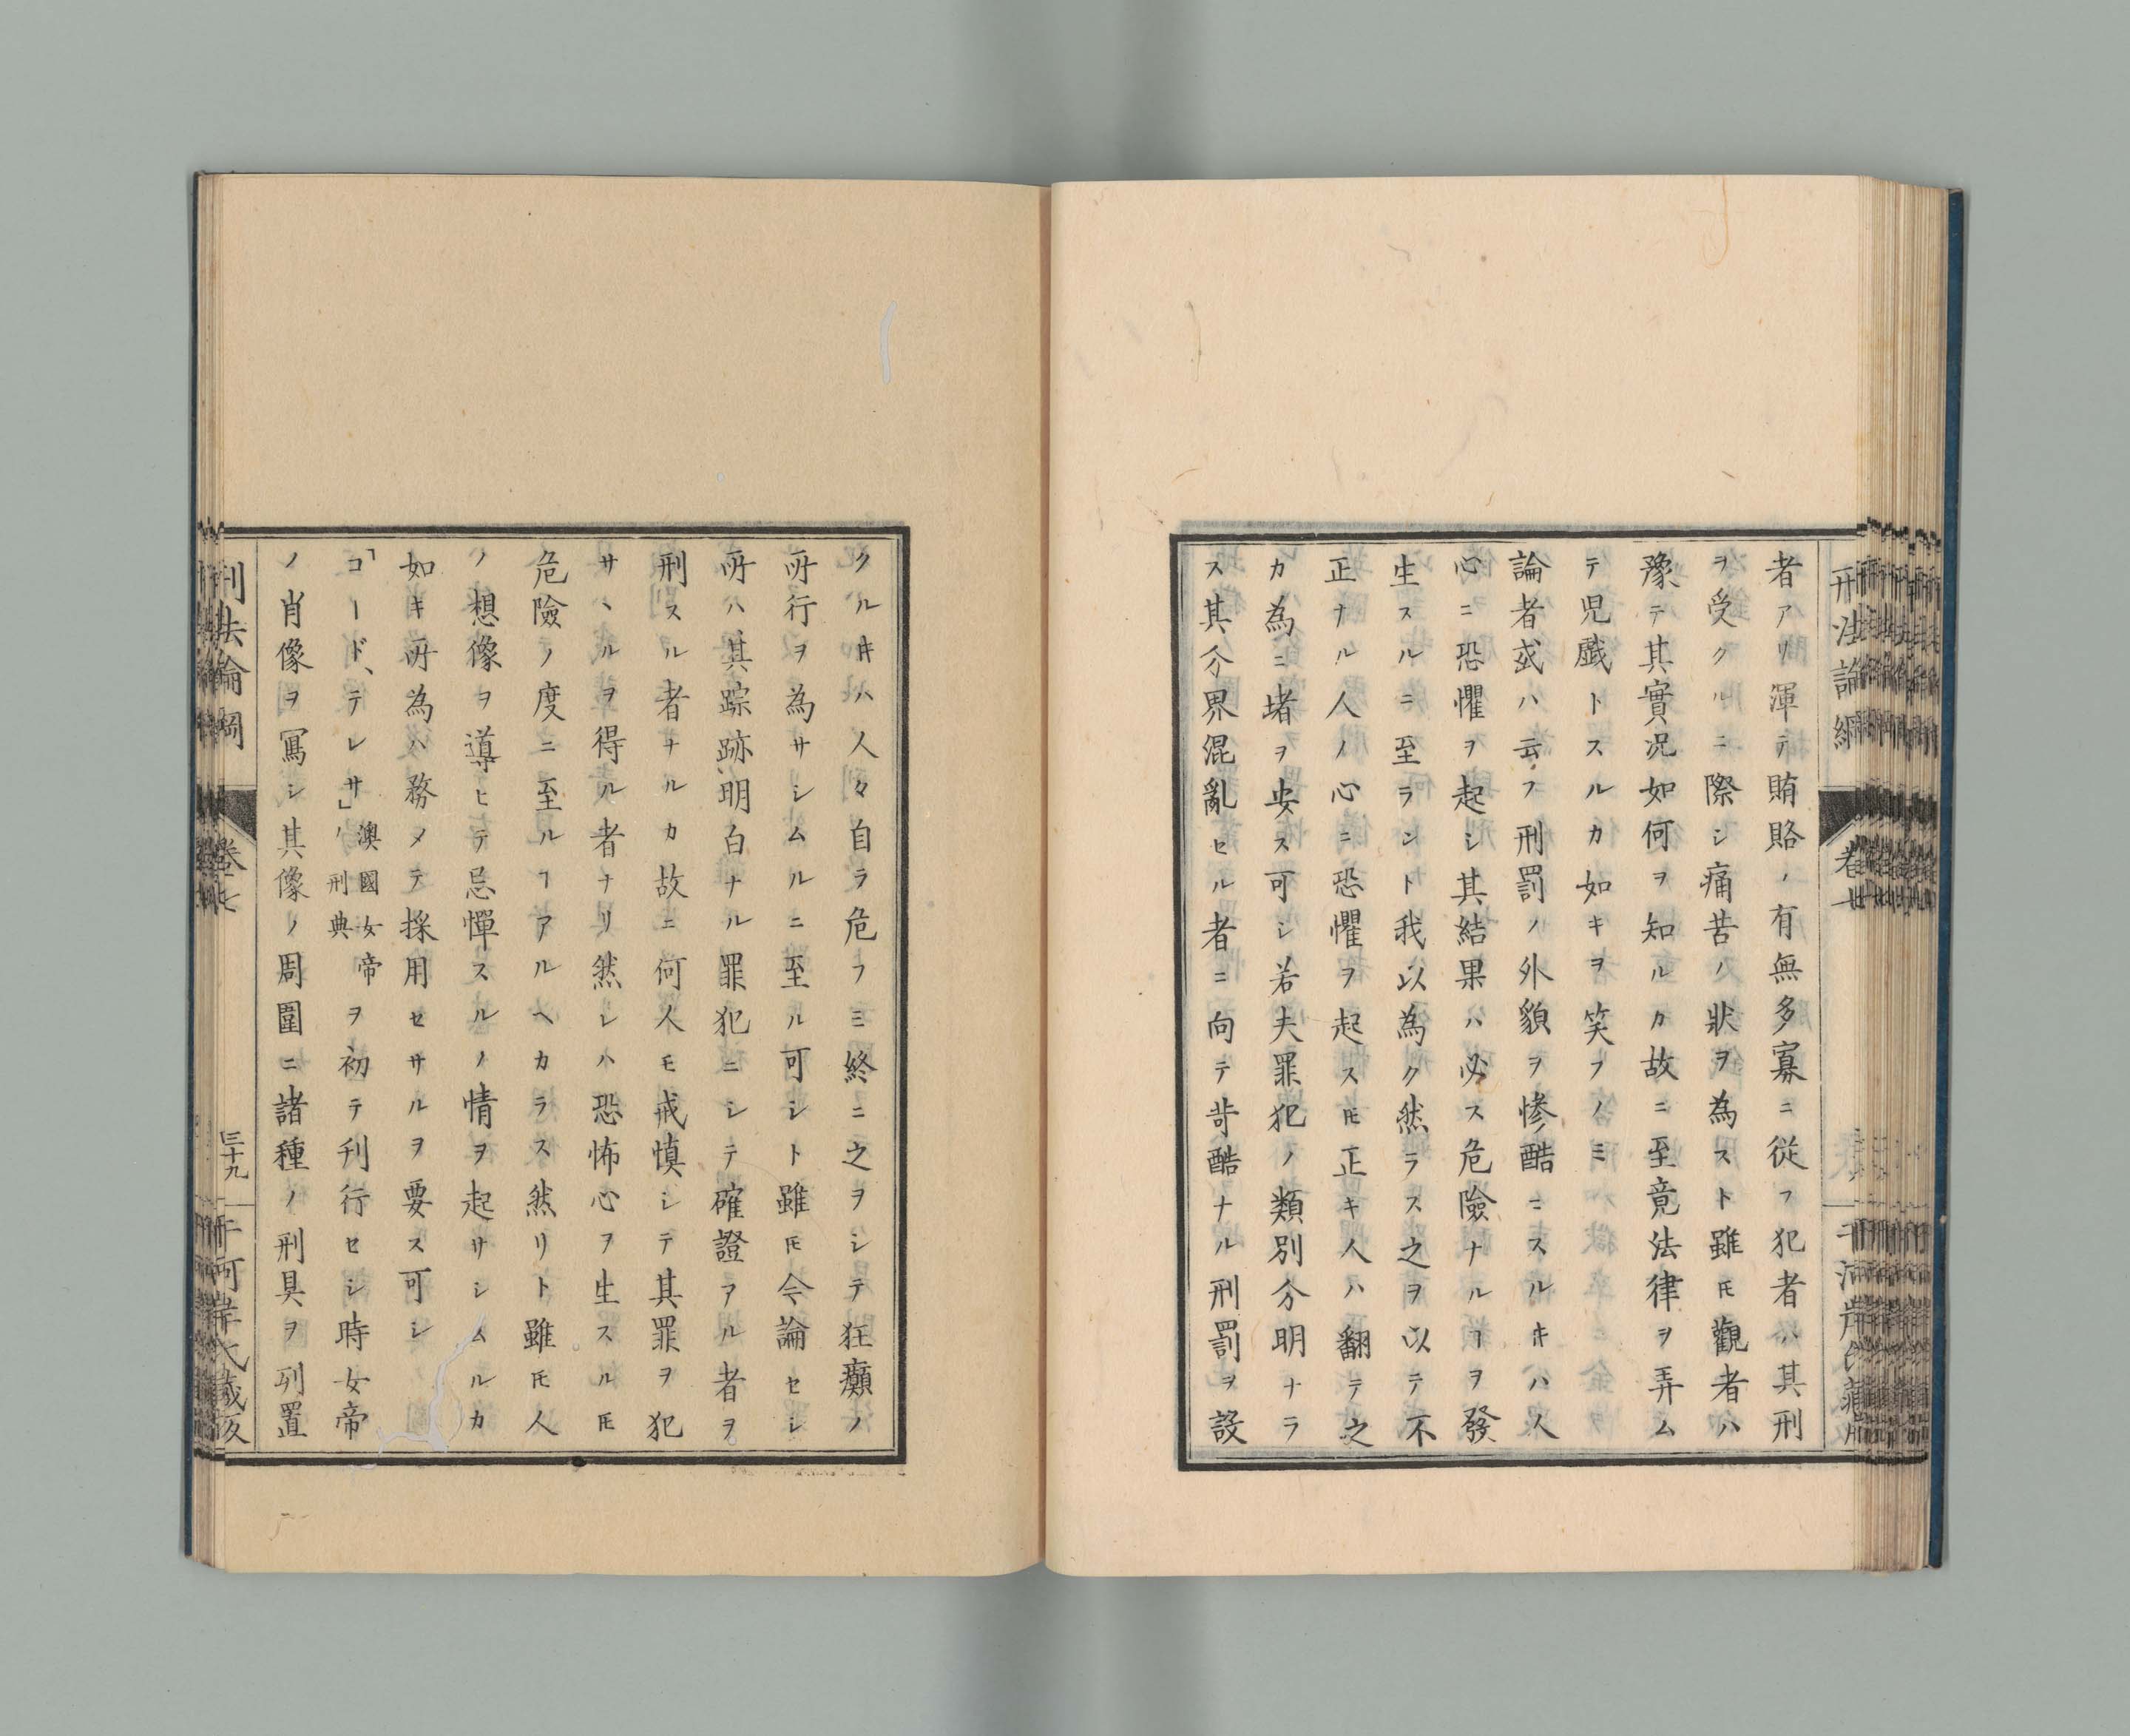 刑法論綱
卷七
者アリ渾テ賄賂ノ有無多寡ニ從フ犯者ハ其刑
ヲ受クルニ際シ痛苦ノ狀ヲ為スト雖𪜈觀者ハ
豫テ其實況如何ヲ知ルカ故ニ至竟法律ヲ弄ム
テ児戲トスルカ如キヲ笑フノミ
論者或ハ云フ刑罰ノ外貌ヲ慘酷ニスルキハ人
心ニ恐懼ヲ起シ其結果ハ必ス危險ナルヿヲ發
生スルニ至ラント我以為ク然ラス之ヲ以テ不
正ナル人ノ心ニ恐懼ヲ起ス𪜈正キ人ハ翻テ之
カ為ニ堵ヲ安ス可シ若夫罪犯ノ類別分明ナラ
ス其分界混亂セル者ニ向テ苛酷ナル刑罰ヲ設
クルキハ人々自ラ危フミ終ニ之ヲシテ狂癲ノ
所行ヲ為サシムルニ至ル可シト雖𪜈今論セシ
所ハ其踪跡明白ナル罪犯ニシテ確證アル者ヲ
刑スル者ナルカ故ニ何人モ戒慎シテ其罪ヲ犯
サヽルヲ得ル者ナリ然レハ恐怖心ヲ生スル𪜈
危險ノ度ニ至ルヿアルヘカラス然リト雖𪜈人
ノ想像ヲ導ヒテ忌憚スルノ情ヲ起サシムルカ
如キ所為ハ務メテ採用セサルヲ要ス可シ
「コード、テレサ」澳國女帝ノ刑典ヲ初テ刊行セシ時女帝
ノ肖像ヲ寫シ其像ノ周圍ニ諸種ノ刑具ヲ列置
刑法論綱
卷七
三十九
干河岸氏藏版